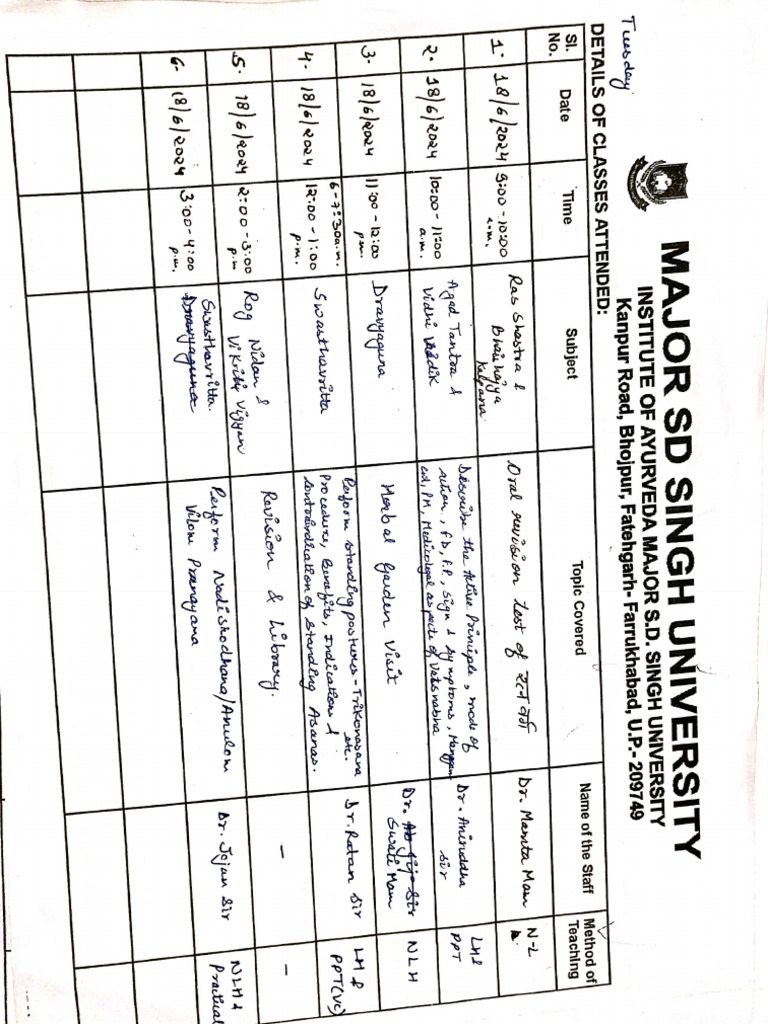 MAJOR SD SINGH UNIVERSITY
INSTITUTE OF AYURVEDA MAJOR S.D. SINGH UNIVERSITY
Kanpur Road, Bhojpur, Fatehgarh- Farrukhabad, U.P.- 209749
Tuesday
DETAILS OF CLASSES ATTENDED:
Sl. No. Date Time Subject Topic Covered Name of the Staff Method of Teaching
1. 18/6/2024 9:00 - 10:00 a.m. Ras Shastra & Bhaishajya Kalpana Oral revision test of रत्न वर्ग Dr. Mamta Mam N-L
2. 18/6/2024 10:00 - 11:00 a.m. Agad Tantra & Vidhi Vaidik Describe the Active Principle, mode of
action, FD, F.P, Sign & Symptoms,
ed, PM, Medicolegal aspects of Vatsnabha Dr. Aniruddha Sir LH& PPT
3. 18/6/2024 11:00 - 12:00 p.m. Dravyaguna Herbal Garden Visit Dr. Swati Mam NLH
4. 18/6/2024 6-7:30a.m. 12:00 - 1:00 p.m. Swasthavritta Perform standing postures - Trikonasana etc.
Procedure, Benefits, Indication &
Contraindication of Standing Asanas. Dr. Ratan Sir LH & PPT(VC)
5. 18/6/2024 2:00 - 3:00 p.m Rog Nidan & Vikriti Vigyan Revision & Library. - -
6. 18/6/2024 3:00 - 4:00 p.m. Swasthavritta. Dravyaguna Perform Nadishodhana/Anulom
Vilom Pranayama Dr. Jojan Sir NLH & Practical